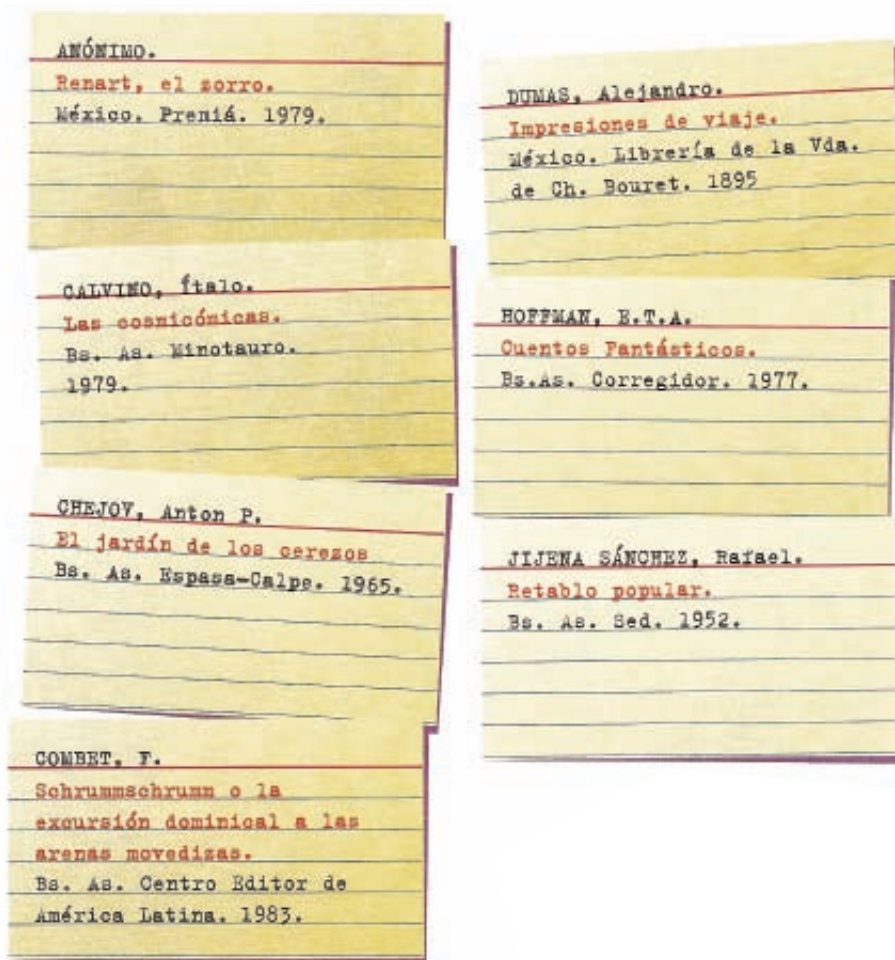 ANÓNIMO.
Renart, el zorro.
México. Premiá. 1979.
CALVINO, Ítalo.
Las cosmicómicas.
Bs. As. Minotauro.
1979.
CHEJOV, Anton P.
El jardín de los cerezos
Bs. As. Espasa-Calpe. 1965.
COMBET, F.
Schrummschrumm o la
excursión dominical a las
arenas movedizas.
Bs. As. Centro Editor de
América Latina. 1983.
DUMAS, Alejandro.
Impresiones de viaje.
México. Librería de la Vda.
de Ch. Bouret. 1895
HOFFMAN, E.T.A.
Cuentos Fantásticos.
Bs.As. Corregidor. 1977.
JIJENA SÁNCHEZ, Rafael.
Retablo popular.
Bs. As. Sed. 1952.